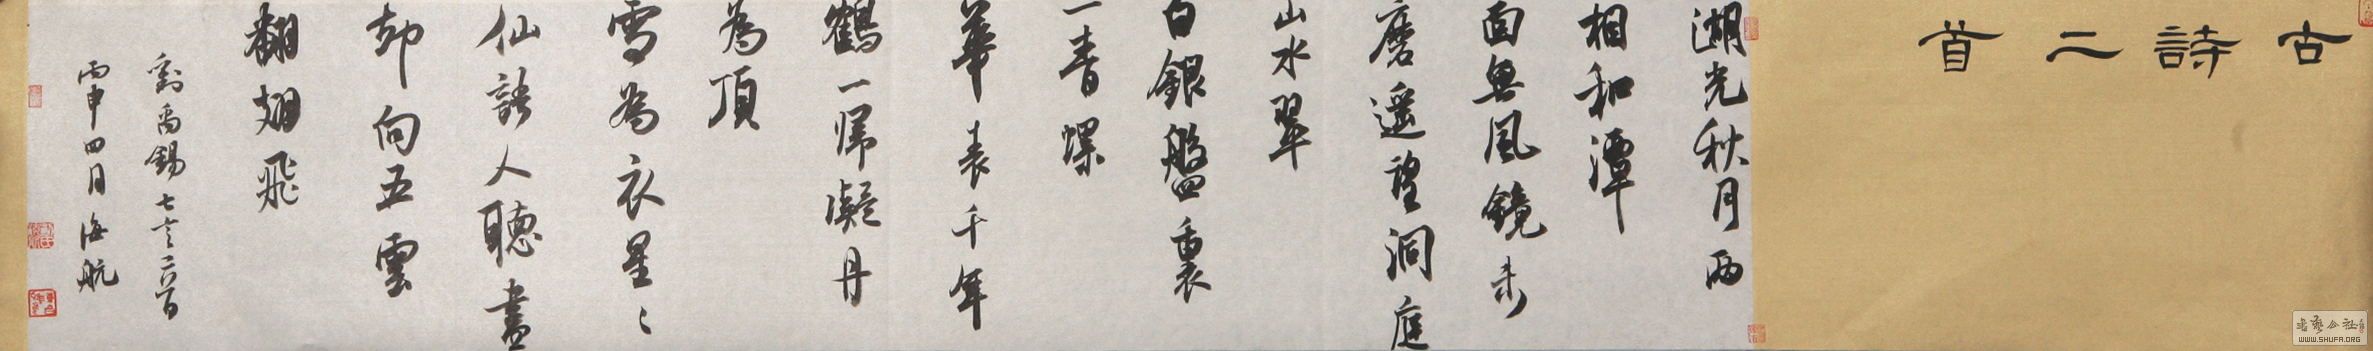 古詩二首
湖光秋月兩
相和潭
面無風鏡未
磨遥望洞庭
山水翠
白銀盤裏
一青螺
華表千年
鶴一歸凝丹
為頂
雪為衣星〻
仙語人聽盡
却向五雲
翻翅飛
劉禹錫七言二首
丙申四月海航
書藝公社
WWW.SHUFA.ORG